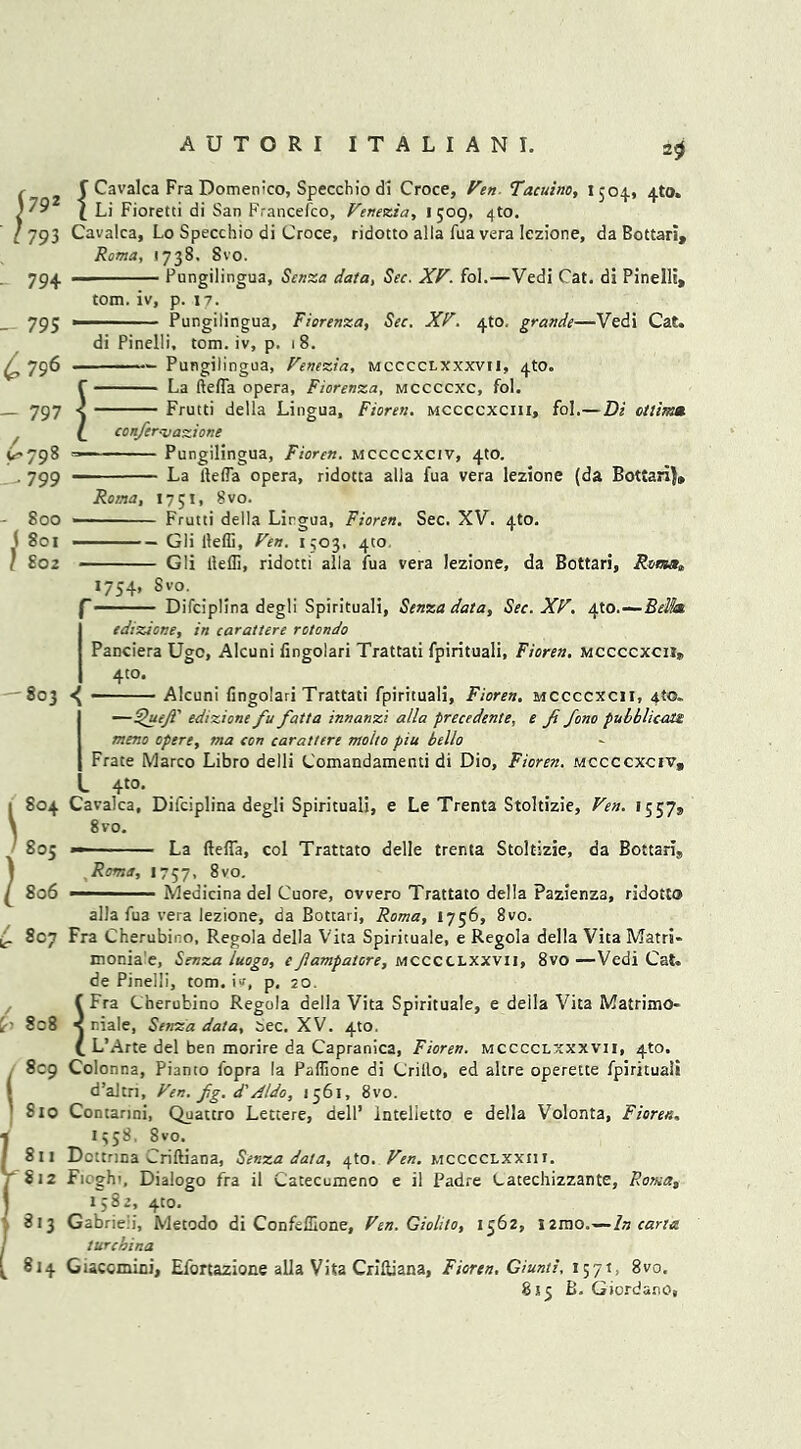 AUTORI ITALIANI. 29
792 { Cavalca Fra Domenico, Specchio di Croce, Ven. Tacuino, 1504, 4to.
Li Fioretti di San Franceſco, Venezia, 1509, 4to.
793 Cavalca, Lo Specchio di Croce, ridotto alla ſua vera lezione, da Bottari,
Roma, 1738, 8vo.
794 ——— Pungilingua, Senza data, Sec. XV. fol.—Vedi Cat. di Pinelli,
tom. iv, p. 17.
795 ——— Pungilingua, Fiorenza, Sec. XV. 4to. grande—Vedi Cat.
di Pinelli, tom. iv, p. 18.
796 ——— Pungilingua, Venezia, MCCCCLXXXVII, 4to.
797 { ——— La ſteſſa opera, Fiorenza, MCCCCXC, fol.
——— Frutti della Lingua, Fioren. MCCCCXCIII, fol.—Di ottima
conſervazione
798 ——— Pungilingua, Fioren. MCCCCXCIV, 4to.
799 ——— La ſteſſa opera, ridotta alla ſua vera lezione (da Bottari),
Roma, 1751, 8vo.
800 ——— Frutti della Lingua, Fioren. Sec. XV. 4to.
801 ——— Gli ſteſſi, Ven. 1503, 4to.
802 ——— Gli ſteſſi, ridotti alla ſua vera lezione, da Bottari, Roma,
1754, 8vo.
803 { ——— Diſciplina degli Spirituali, Senza data, Sec. XV. 4to.—Bella
edizione, in carattere rotondo
Panciera Ugo, Alcuni ſingolari Trattati ſpirituali, Fioren. MCCCCXCII,
4to.
——— Alcuni ſingolari Trattati ſpirituali, Fioren. MCCCCXCII, 4to.
—Queſt' edizione fu fatta innanzi alla precedente, e ſi ſono pubblicate
meno opere, ma con carattere molto piu bello
Frate Marco Libro delli Comandamenti di Dio, Fioren. MCCCCXCIV,
4to.
804 Cavalca, Diſciplina degli Spirituali, e Le Trenta Stoltizie, Ven. 1557,
8vo.
805 ——— La ſteſſa, col Trattato delle trenta Stoltizie, da Bottari,
Roma, 1757, 8vo.
806 ——— Medicina del Cuore, ovvero Trattato della Pazienza, ridotto
alla ſua vera lezione, da Bottari, Roma, 1756, 8vo.
807 Fra Cherubino, Regola della Vita Spirituale, e Regola della Vita Matri-
moniale, Senza luogo, e ſtampatore, MCCCCLXXVII, 8vo—Vedi Cat.
de Pinelli, tom. iv, p. 20.
808 { Fra Cherubino Regola della Vita Spirituale, e della Vita Matrimo-
niale, Senza data, Sec. XV. 4to.
L'Arte del ben morire da Capranica, Fioren. MCCCCLXXXVII, 4to.
809 Colonna, Pianto ſopra la Paſſione di Criſto, ed altre operette ſpirituali
d'altri, Ven. fig. d'Aldo, 1561, 8vo.
810 Contarini, Quattro Lettere, dell' Intelletto e della Volonta, Fioren.
1558, 8vo.
811 Dottrina Criſtiana, Senza data, 4to. Ven. MCCCCLXXIII.
812 Fioghi, Dialogo fra il Catecumeno e il Padre Catechizzante, Roma,
1582, 4to.
813 Gabrieli, Metodo di Confeſſione, Ven. Giolito, 1562, 12mo.—In carta
turchina
814 Giaccmini, Eſortazione alla Vita Criſtiana, Fioren. Giunti, 1571, 8vo.
815 B. Giordano,